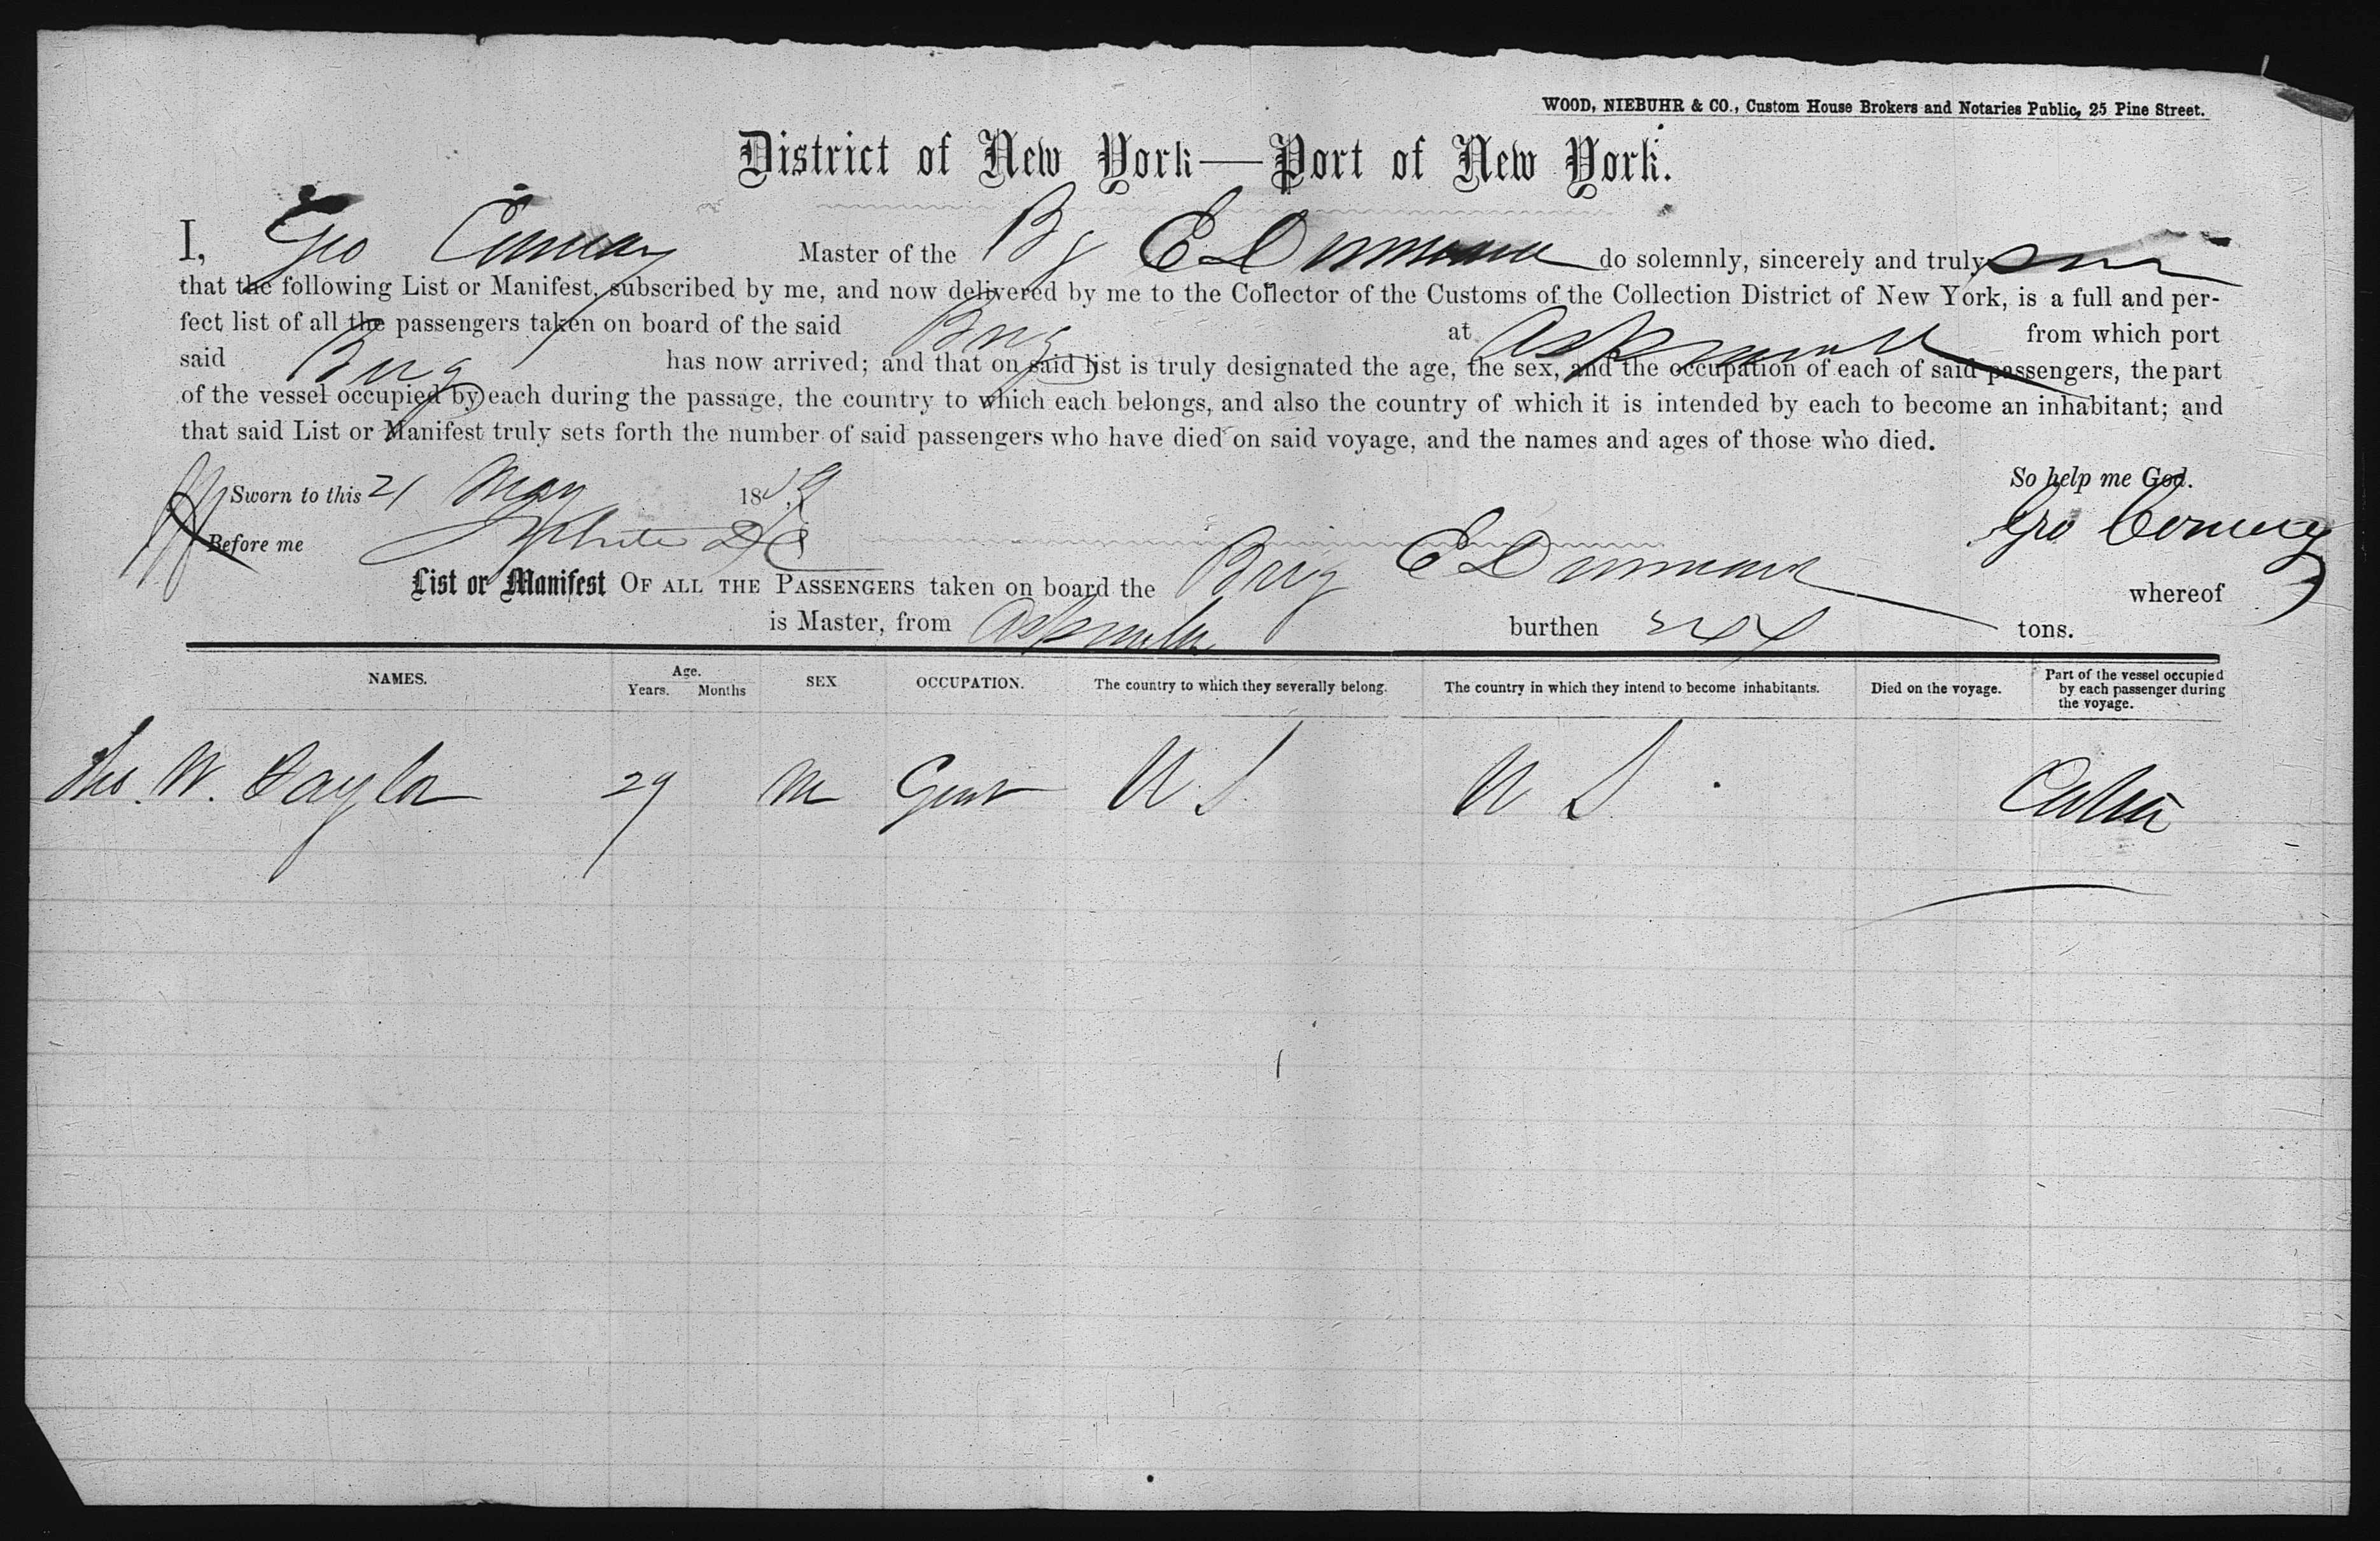 WOOD, NIEBUHR & CO., Custom House Brokers and Notaries Public, 25 Pine Street.
District of New York—Port of New York.
I, Geo Master of the Bg E Drummond do solemnly, sincerely and truly
that the following List or Manifest, subscribed by me, and now delivered by me to the Collector of the Customs of the Collection District of New York, is a full and per-
fect list of all the passengers taken on board of the said Brig at Aspinwall from which port
said Brig has now arrived; and that on said list is truly designated the age, the sex, and the occupation of each of said passengers, the part
of the vessel occupied by each during the passage, the country to which each belongs, and also the country of which it is intended by each to become an inhabitant; and
that said List or Manifest truly sets forth the number of said passengers who have died on said voyage, and the names and ages of those who died.
So help me God.
Sworn to this 21 May 1859
Geo
Before me
List or Manifest OF ALL THE PASSENGERS taken on board the Brig E Drummond whereof
is Master, from Aspinwall burthen tons.
NAMES. Age. Years. Months SEX OCCUPATION. The country to which they severally belong. The country in which they intend to become inhabitants. Died on the voyage. Part of the vessel occupied by each passenger during the voyage.
Tho. W. Taylor 29 M Gent U S U S Cabin